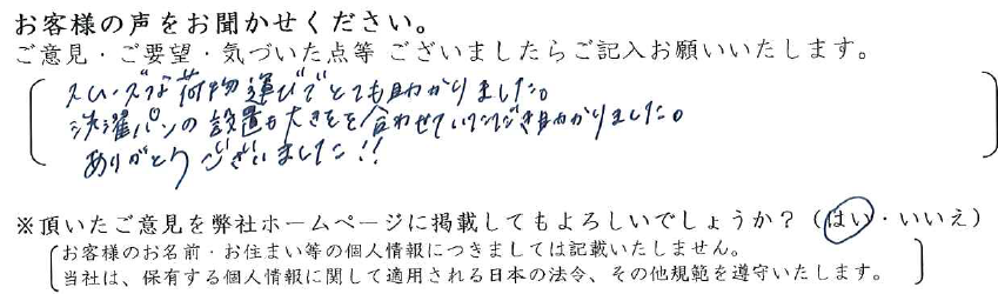 お客様の声をお聞かせください。
ご意見・ご要望・気づいた点等 ございましたらご記入お願いいたします。
スムーズな荷物運びでとても助かりました。
洗濯パンの設置も大きさを合わせていただき助かりました。
ありがとうございました!!
※頂いたご意見を弊社ホームページに掲載してもよろしいでしょうか?(はい・いいえ)
お客様のお名前・お住まい等の個人情報につきましては記載いたしません。
当社は、保有する個人情報に関して適用される日本の法令、その他規範を遵守いたします。